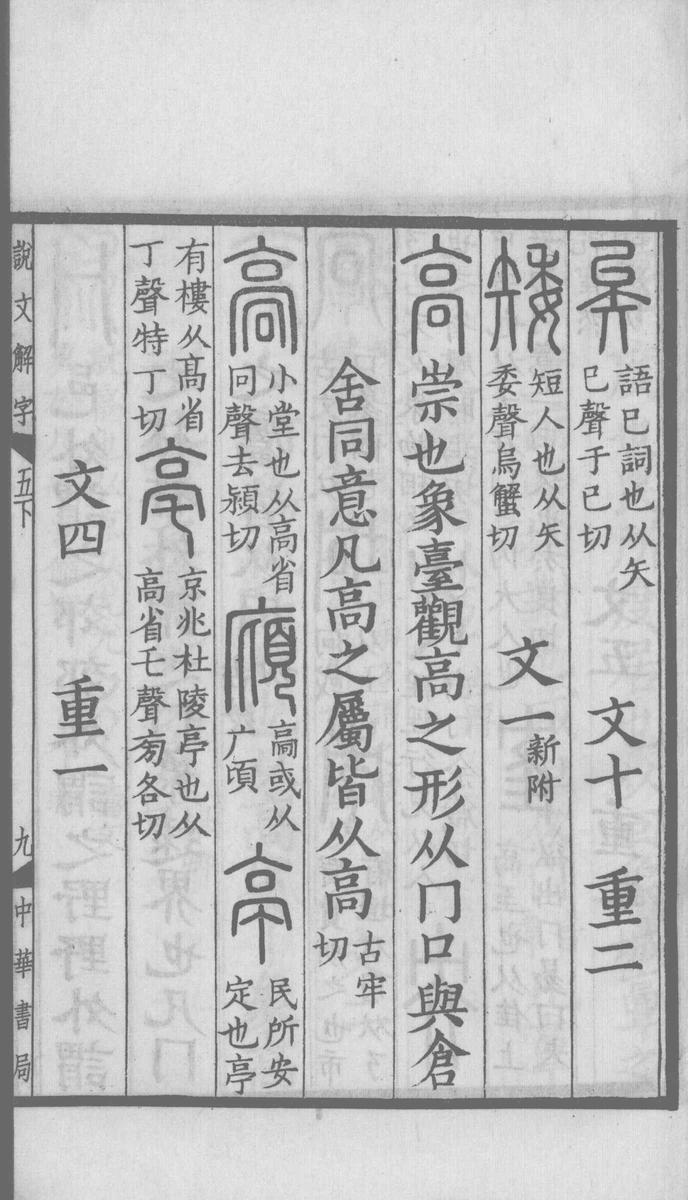 矣語已詞也从矢
已聲于已切　文十　重二
矮短人也从矢
委聲烏蟹切　文一新附
高崇也象臺觀高之形从冂口與倉
舍同意凡高之屬皆从高古牢切
髙小堂也从高省冋聲去潁切廎高或从广頃亭民所安定也亭
有樓从高省丁聲特丁切亳京兆杜陵亭也从高省乇聲旁各切
文四　重一
說文解字　五下　九　中華書局